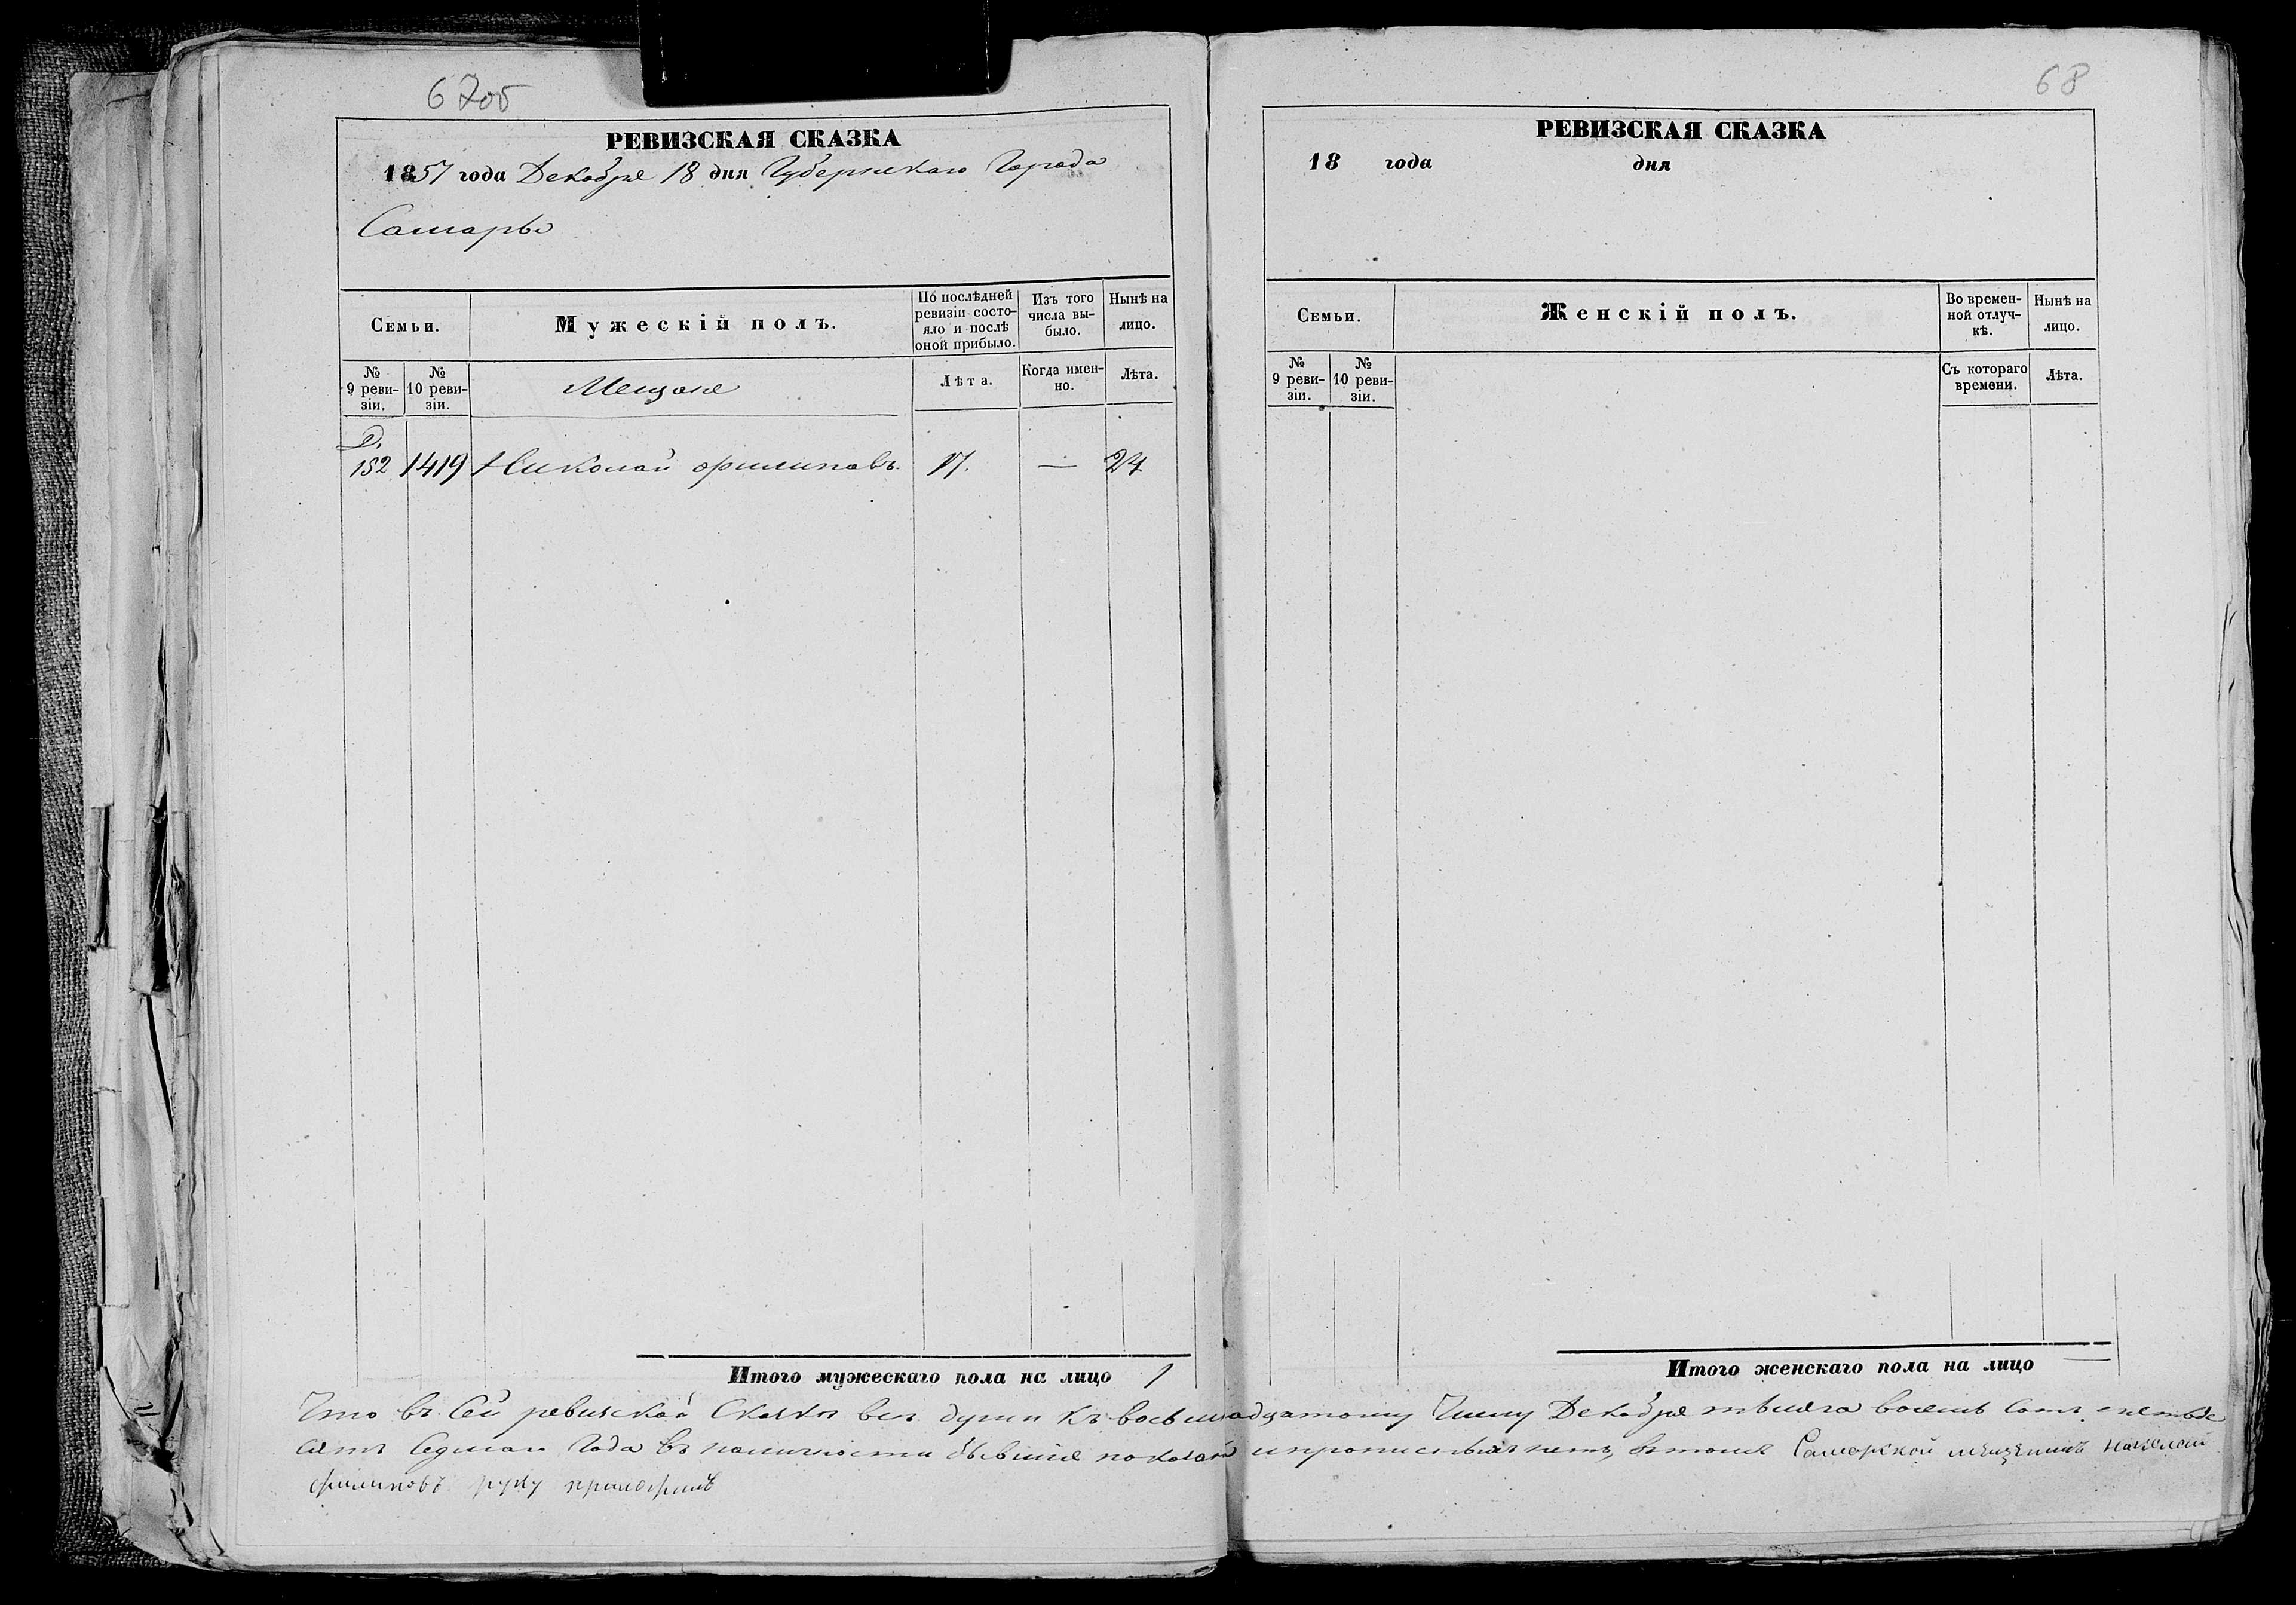 67об
РЕВИЗСКАЯ СКАЗКА
1857 года Декабря 18 дня Губернскаго Города
Самары
Семьи.
Мужескій полъ.
По послѣдней
ревизіи состо-
яло и послѣ
оной прибыло.
Изъ того
числа вы-
было.
Нынѣ на
лицо.
№
9 реви-
зіи.
№
10 реви-
зіи.
Мещане
Лѣта.
Когда имен-
но.
Лѣта.
152 1419 Николай Филиповъ. 17. — 24
Итого мужескаго пола на лицо 1
68
РЕВИЗСКАЯ СКАЗКА
18 года дня
Семьи.
Женскій полъ.
Во времен-
ной отлуч-
кѣ.
Нынѣ на
лицо.
№
9 реви-
зіи.
№
10 реви-
зіи.
Съ котораго
времени.
Лѣта.
Итого женскаго пола на лицо —
Что въ сей ревизской Сказки все души къ восьмнадцатому Числу Декабря тысяча восемь Сотъ пятьде
сятъ Седмаго Года въ наличности бывшие показаны и прописныхъ нетъ, въ томъ Самарской мещенинъ Николай
Филиповъ руку приложилъ